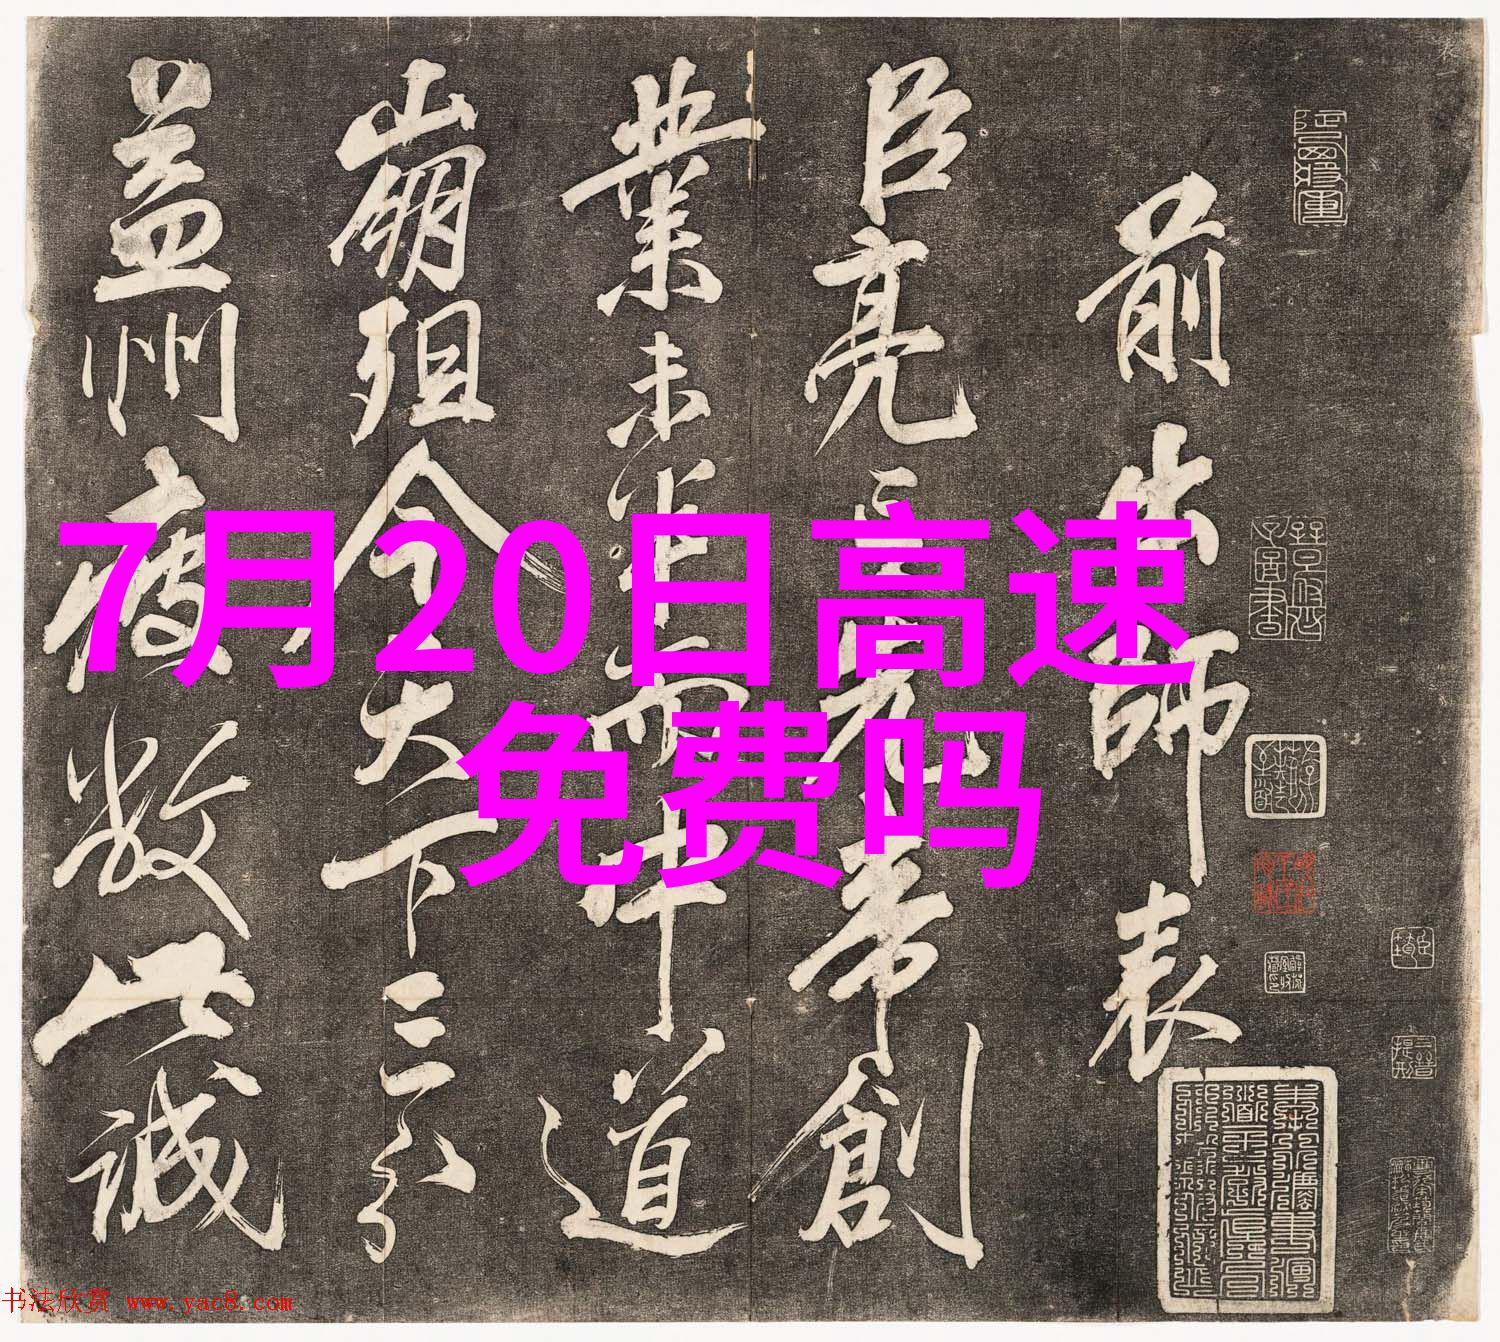 7月20日高速
免费吗
前出師表
臣亮言先帝創
業未半而中道
崩殂今天下三分
益州疲敝此誠
书法欣赏 www.yac8.com